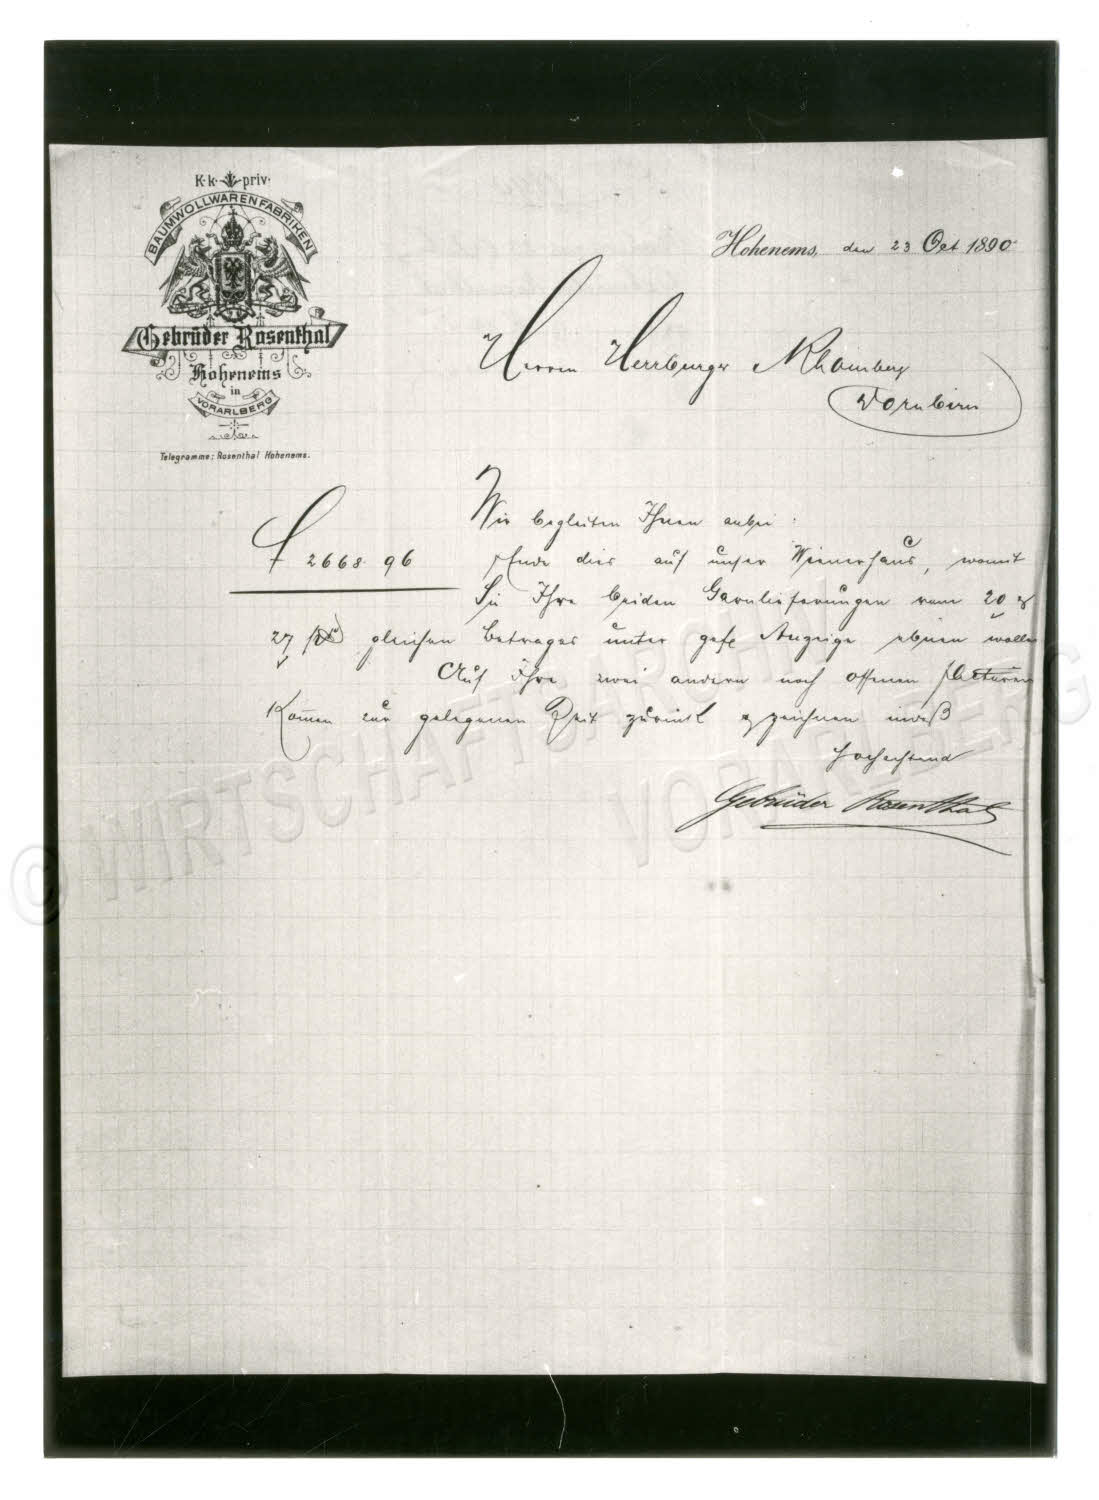 K. k. priv.
BAUMWOLLWARENFABRIKEN
Gebrüder Rosenthal
Hohenems
in
VORARLBERG
Telegramme: Rosenthal Hohenems.
Hohenems, den 23 Oct 1890
Herren Herrburger & Rhomberg
Dornbirn
Wir begleiten Ihnen anbei:
f 2668.96 Ende dies auf unser Wienerhaus, womit
Sie Ihre beiden Garnlieferungen vom 20 &
27 gleichen Betrages unter gefl Anzeige ebnen wollen
Auf Ihre zwei andern noch offenen Facturen
kommen zur gelegenen Zeit zurück & zeichnen indeß
hochachtend
Gebrüder Rosenthal
© WIRTSCHAFTSARCHIV
VORARLBERG